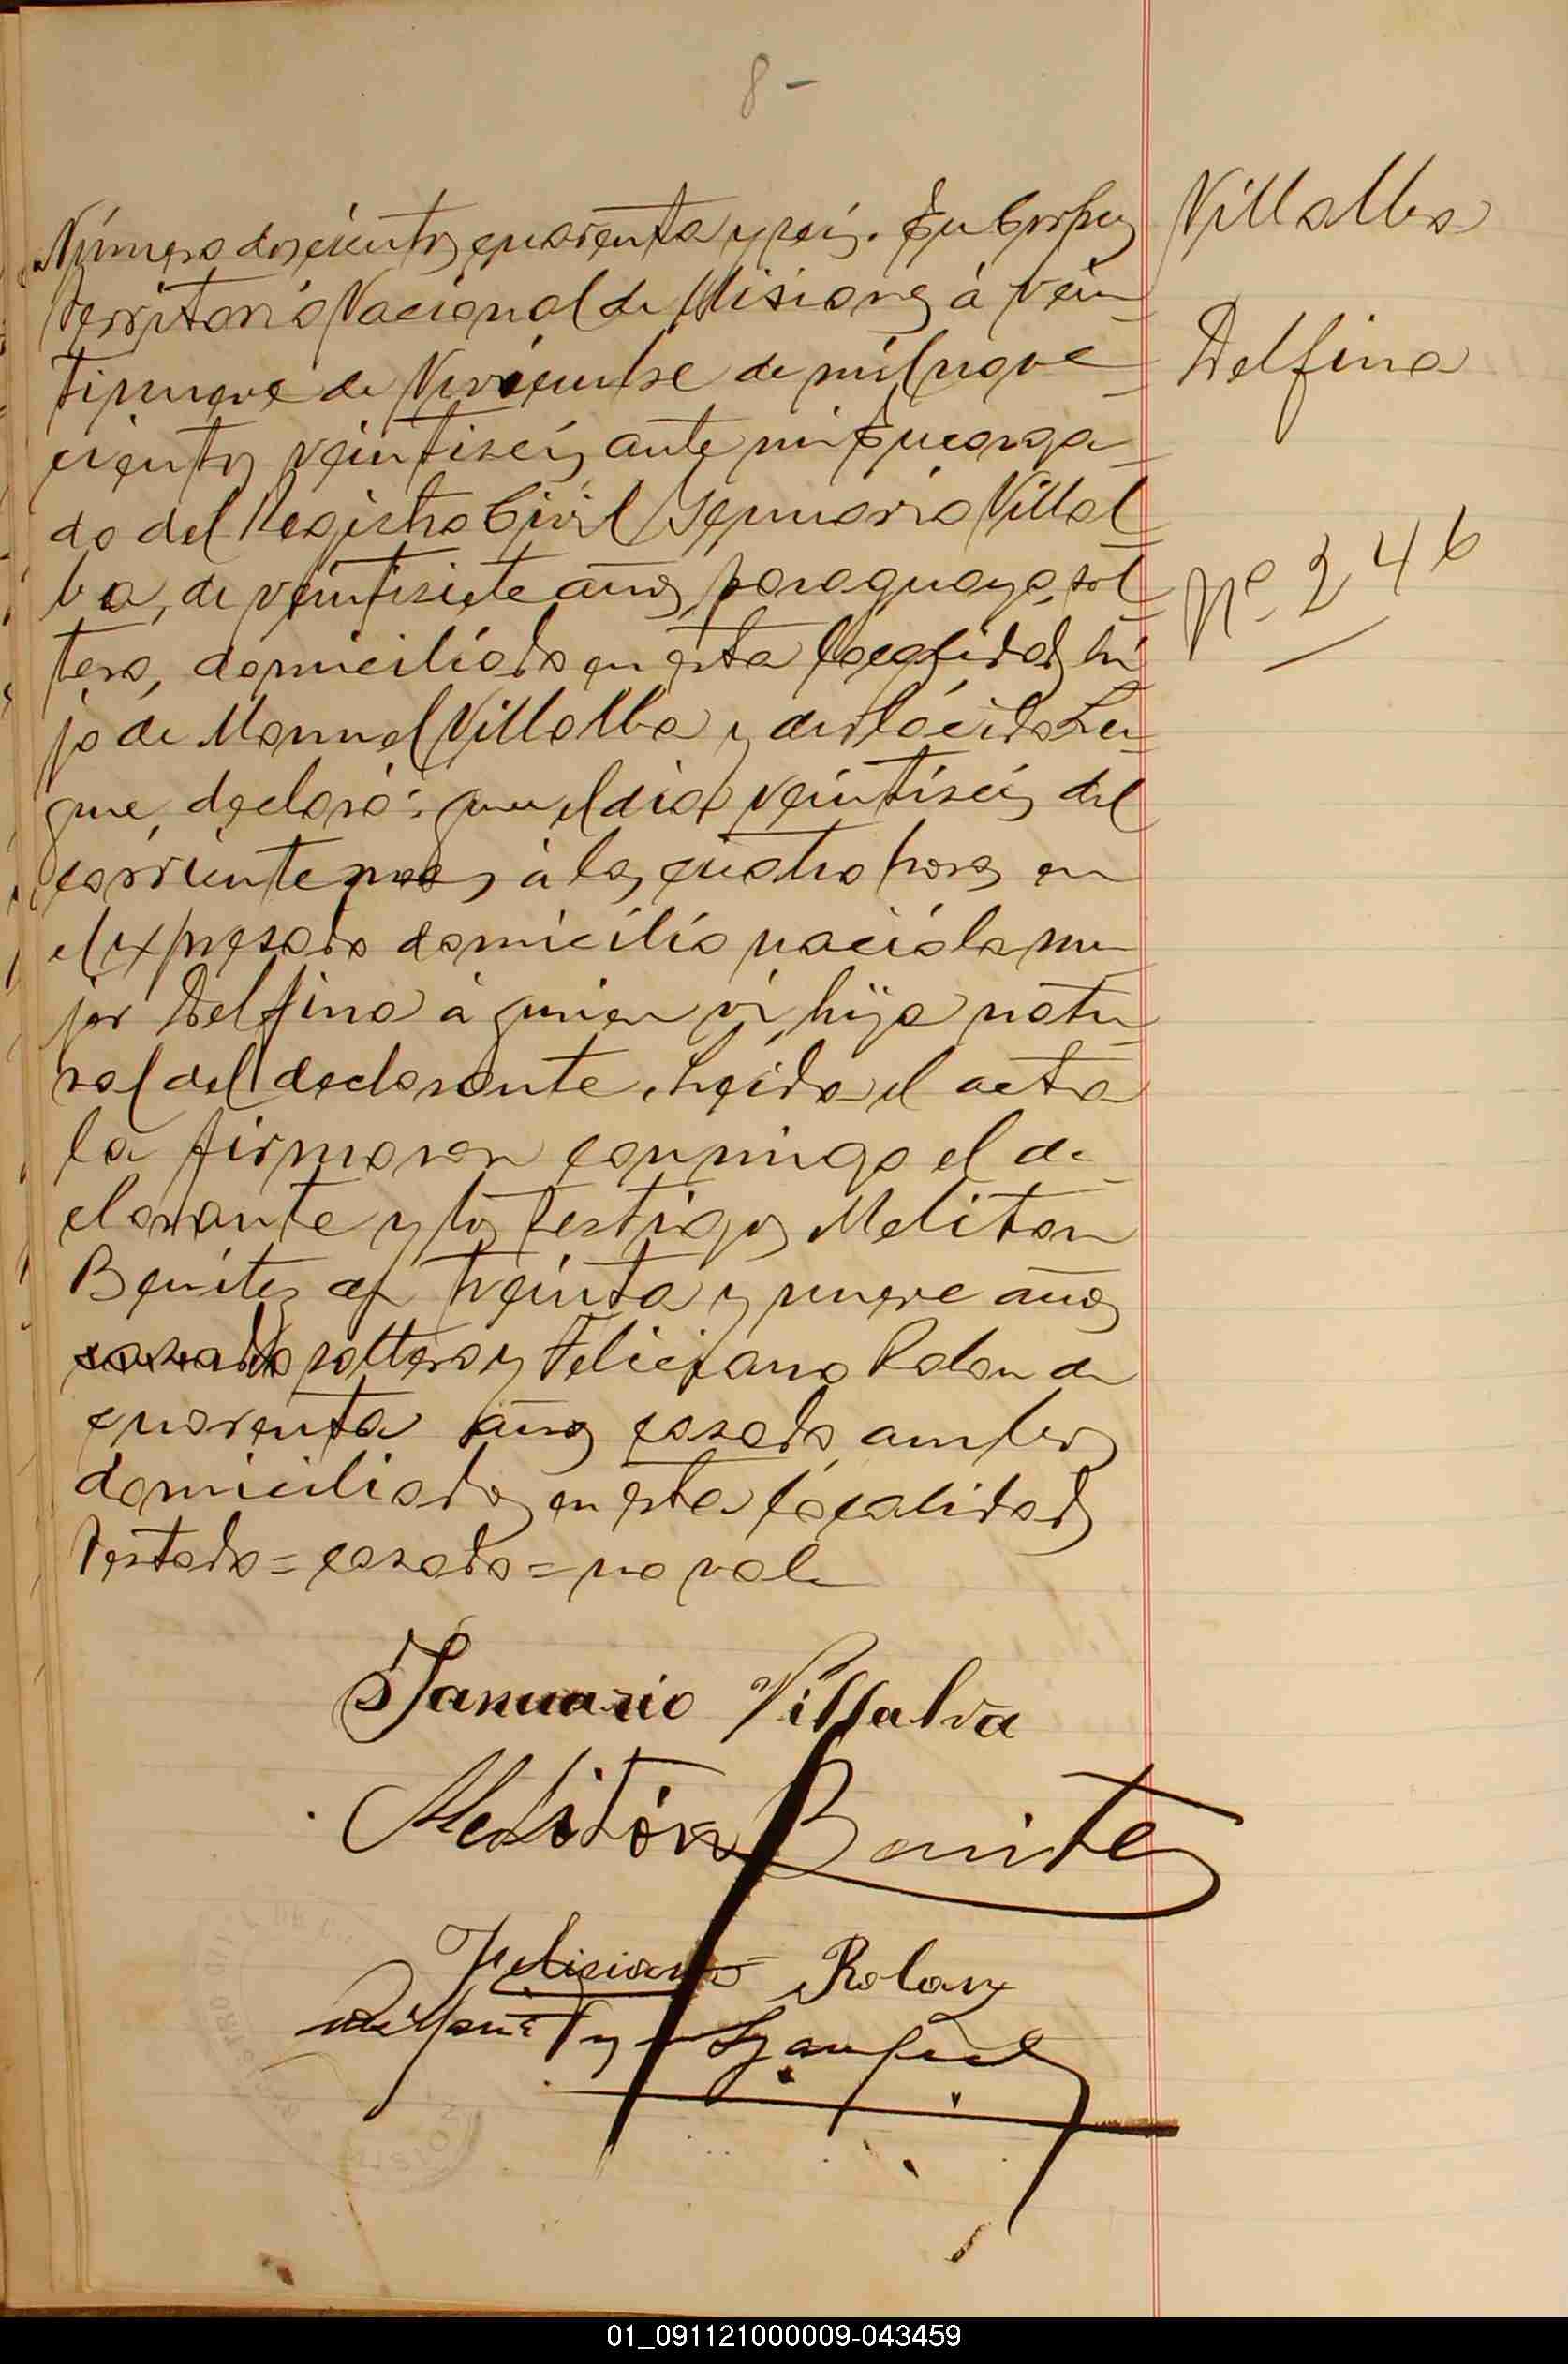 8-
Número doscientos cuarenta y seis. En Corpus
Territorio Nacional de Misiones à vein
tinueve de Noviembre de mil nove
cientos veintiseis ante mi Encarga
do del Registro Civil Genuario Villal
ba, de veintisiete años, paraguayo, sol
tero, domiciliado en esta localidad, hi
jo de Manuel Villalba y de Plácida
que, declaró: que el dia veintiseis del
corriente mes, à las cuatro horas en
el expresado domicilio nació la mu
jer Delfina à quien vi, hija natu
ral del declarante. Leida el acta
la firmaron conmigo el de
clarante y los testigos Meliton
Benites de treinta y nueve años
casado soltero y Feliciano Rolon de
cuarenta años casado, ambos
domiciliados en esta localidad
Testado = casado = no vale
Januario Villalva
Melitón Benites
Feliciano Rolon
Villalba
Delfina
Nº 246
01_091121000009-043459